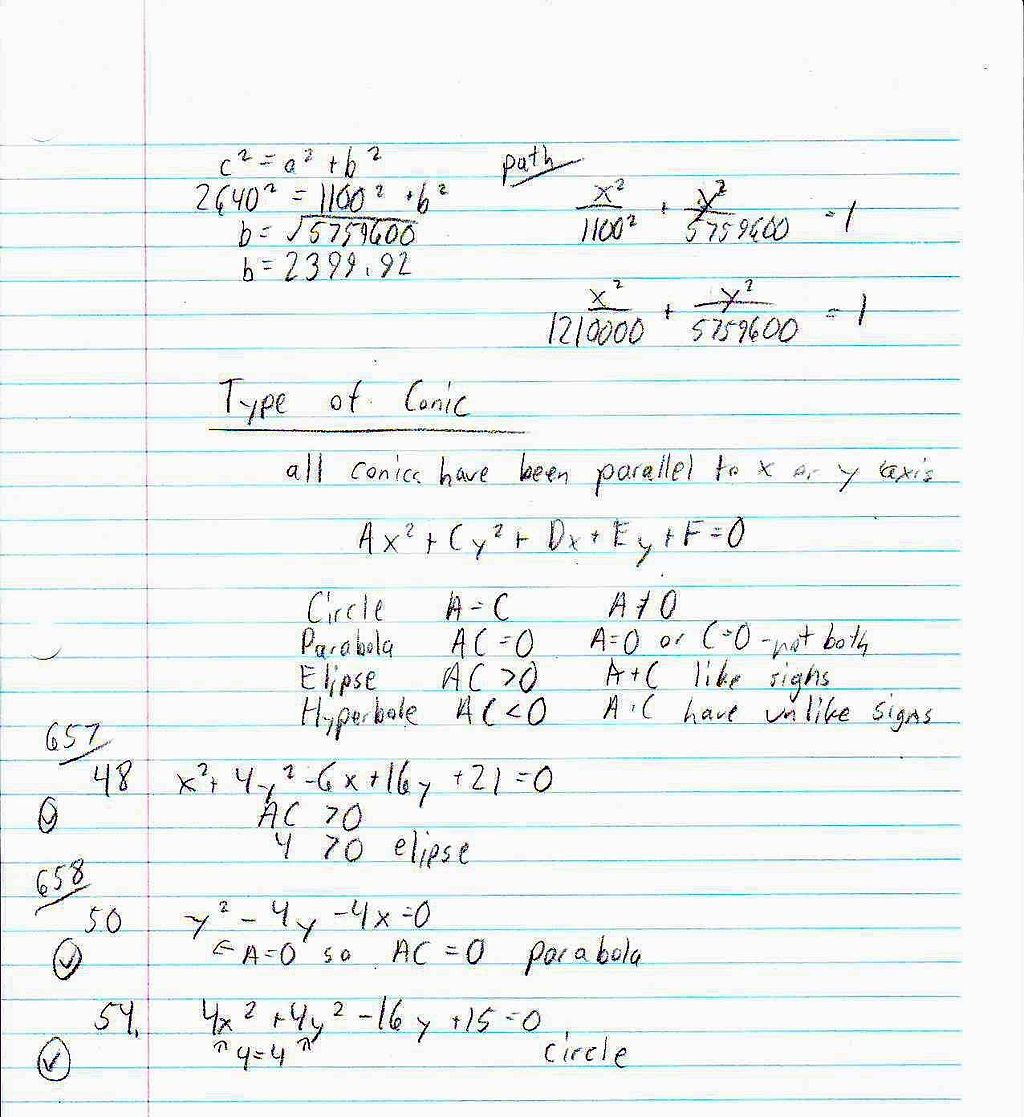 c² = a² + b²
2640² = 1100² + b²
b = √5759600
b = 2399.92
path
x²/1100² + y²/5759600 = 1
x²/1210000 + y²/5759600 = 1
Type of Conic
all conics have been parallel to x or y axis
Ax² + Cy² + Dx + Ey + F = 0
Circle A = C A ≠ 0
Parabola AC = 0 A=0 or C=0 - not both
Elipse AC > 0 A + C like signs
Hyperbole AC < 0 A + C have unlike signs
657
48 x² + 4y² - 6x + 16y + 21 = 0
AC > 0
4 > 0 elipse
658
50 y² - 4y - 4x = 0
← A=0 so AC = 0 parabola
54. 4x² + 4y² - 16y + 15 = 0
↑ 4=4 ↑ circle